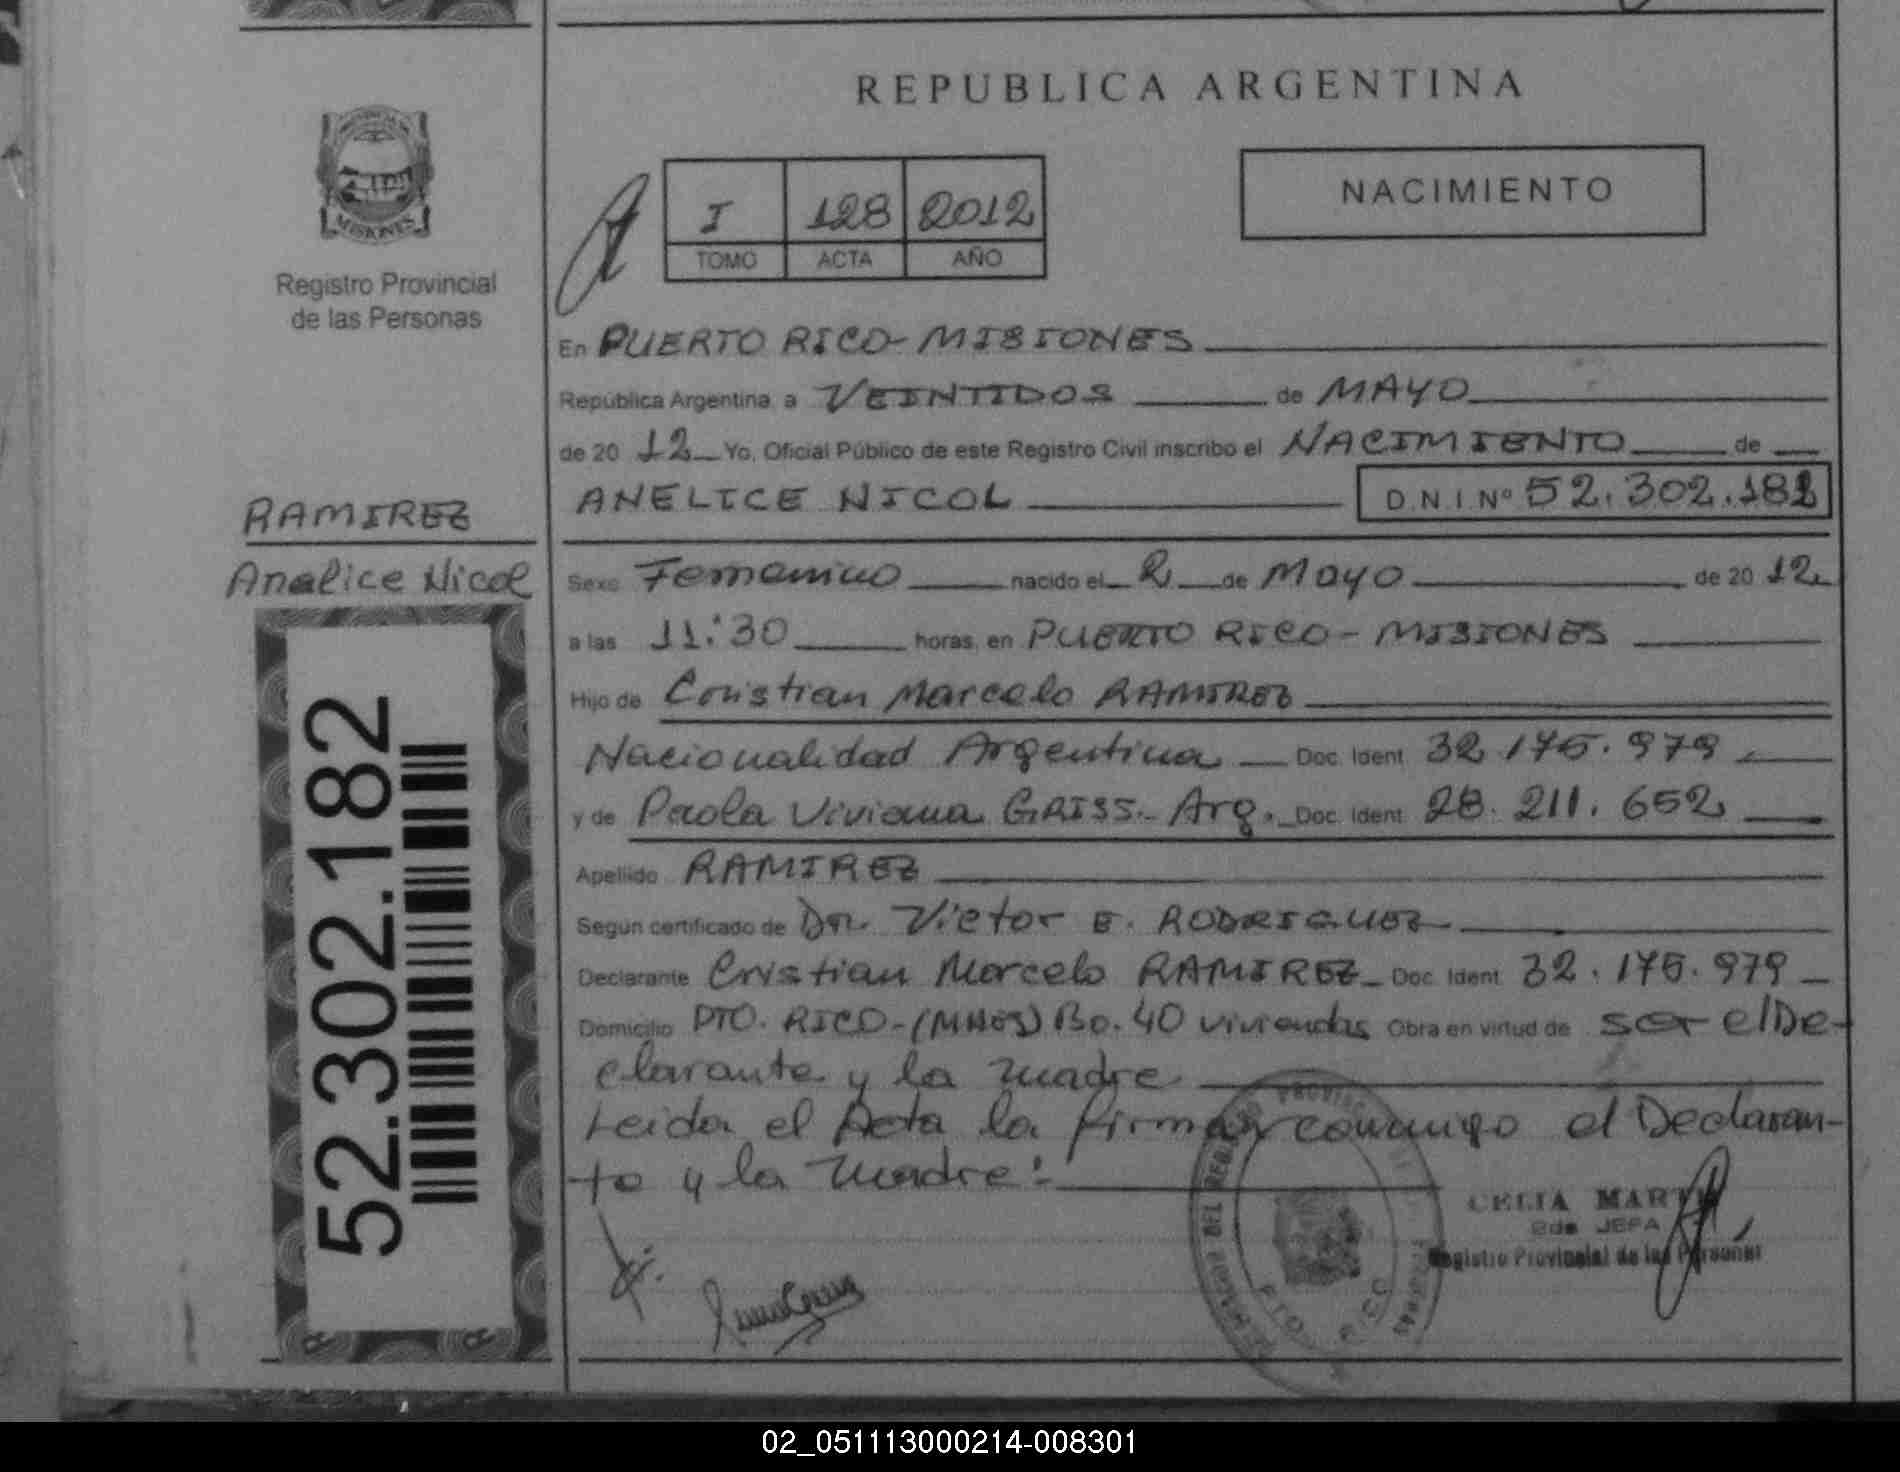 REPUBLICA ARGENTINA
MISIONES
Registro Provincial
de las Personas
I 128 2012
TOMO ACTA AÑO
NACIMIENTO
En PUERTO RICO - MISIONES
República Argentina, a VEINTIDOS de MAYO
de 20 12 Yo, Oficial Público de este Registro Civil inscribo el NACIMIENTO de
ANELICE NICOL D.N.I. Nº 52.302.182
RAMIREZ
Analice Nicol
52.302.182
Sexo Femenino nacido el 2 de Mayo de 20 12
a las 11:30 horas, en PUERTO RICO - MISIONES
Hijo de Cristian Marcelo RAMIREZ
Nacionalidad Argentina Doc. Ident. 32.175.979
y de Paola Viviana GRISS.- Arg. Doc. Ident. 28.211.652
Apellido RAMIREZ
Según certificado de Dr. Victor E. RODRIGUEZ
Declarante Cristian Marcelo RAMIREZ Doc. Ident. 32.175.979
Domicilio PTO. RICO-(MNES) Bo. 40 viviendas Obra en virtud de ser el De-
clarante y la madre
Leida el Acta la firman conmigo el Declaran-
te y la madre:
CELIA
2da JEFA
Registro Provincial de las Personas
PTO. RICO
02_051113000214-008301